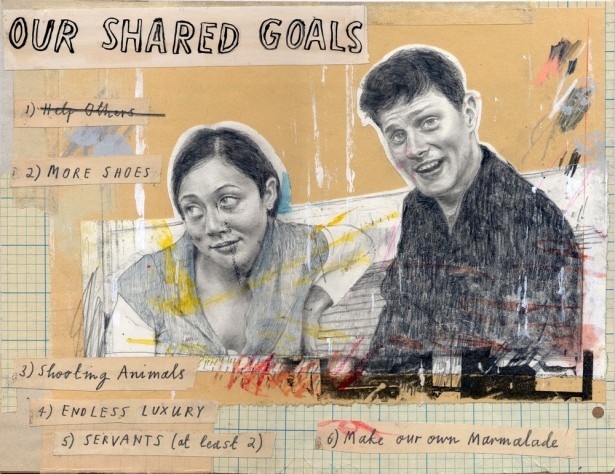 OUR SHARED GOALS
1) Help Others
2) MORE SHOES
3) Shooting Animals
4) ENDLESS LUXURY
5) SERVANTS (at least 2)
6) Make our own Marmalade